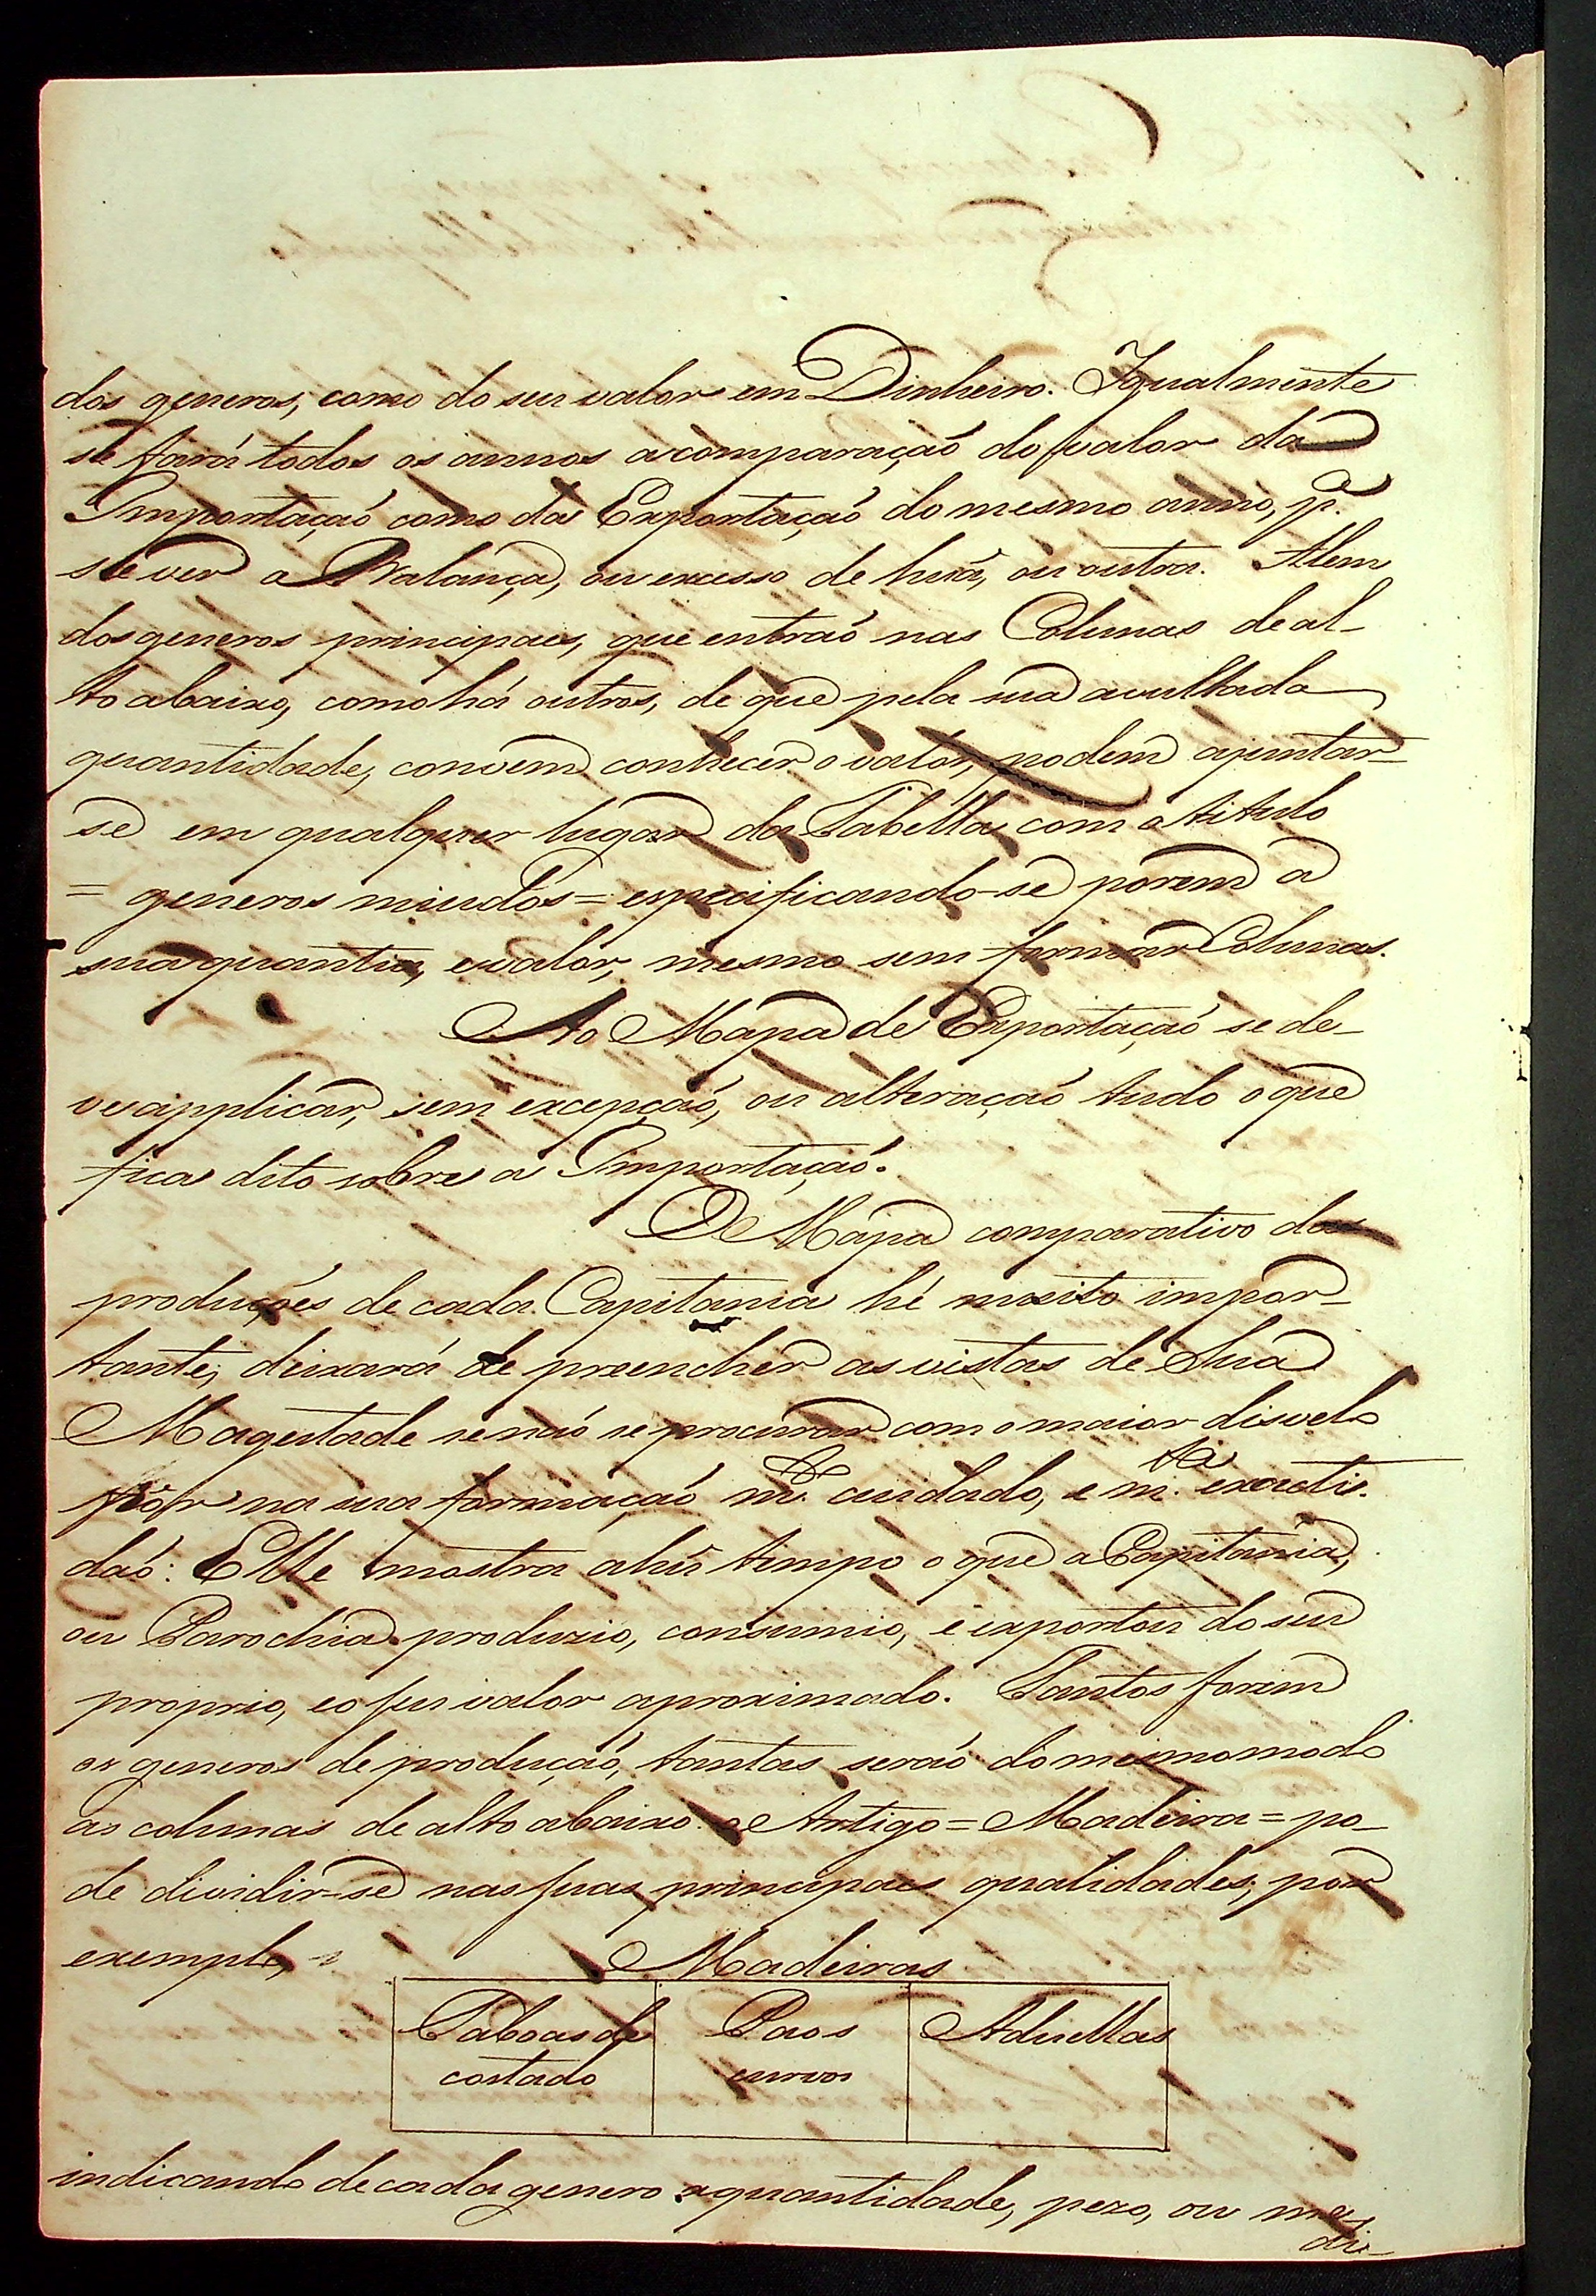 dos generos, como do seu valor em Dinheiro. Igualmente
se fará todos os annos a comparação do valor da
Importação como da Exportação do mesmo anno, p.ª
se ver a Balança, ou excesso de huã, ou outra. Alem
dos generos principaes, que entraõ nas Colunas de al-
to abaixo, como há outros, de que pela sua avultada
quantidade, convem conhecer o valor, podem ajuntar-
se em qualquer lugar da Tabella com o titulo
= generos miudos = especificando-se porem a
sua quantia, e valor, mesmo sem formar Colunas.
Ao Mapa de Exportação se de-
ve applicar, sem excepção, ou alteração tudo o que
fica dito sobre a Importação.
O Mapa comparativo das
produções de cada Capitania hé muito impor-
tante, deixará de preencher as vistas de Sua
Magestade se naõ se procurar com o maior disvelo
pôr na sua formação m.to cuidado, e m.ta exacti-
daõ: Elle mostra a hũ tempo o que a Capitania,
ou Parochia produzio, consumio, e exportou do seu
proprio, e o seu valor aproximado. Tantos forem
os generos de produção, tantas seraõ do mesmo modo
as colunas de alto abaixo. o Artigo = Madeira = po-
de dividir-se nas suas principaes qualidades; por
exemplo,
Madeiras
Taboas de costado
Paos curvos
Aduellas
indicando de cada genero a quantidade, pezo, ou me-
di-